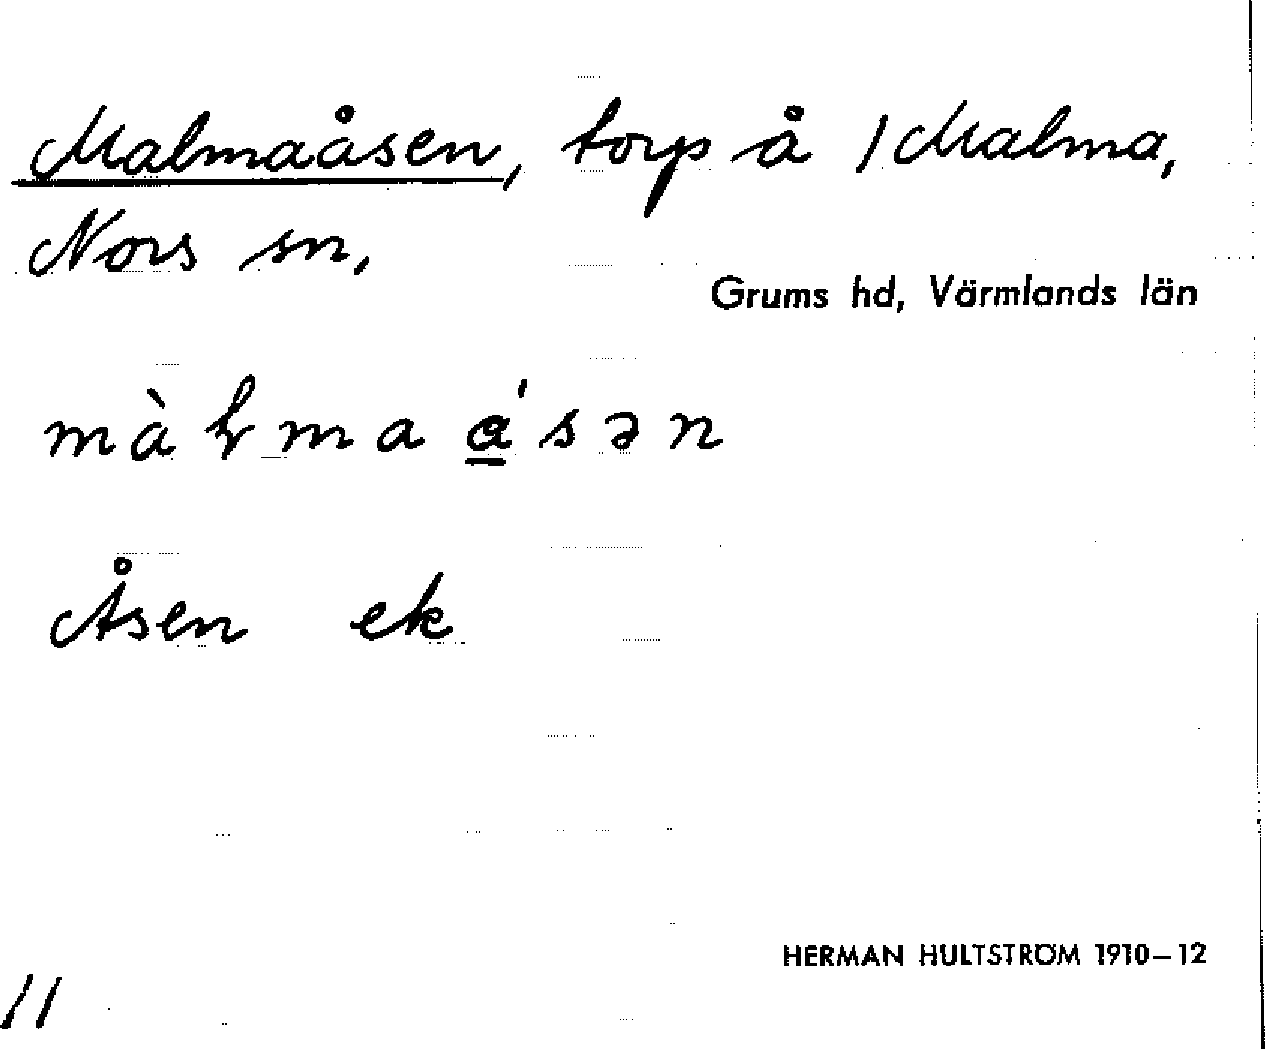 Malmaåsen, torp å 1 Malma,
Nors sn,
Grums hd, Värmlands län
màɫmaá̲sən
Åsen ek
HERMAN HULTSTRÖM 1910–12
11